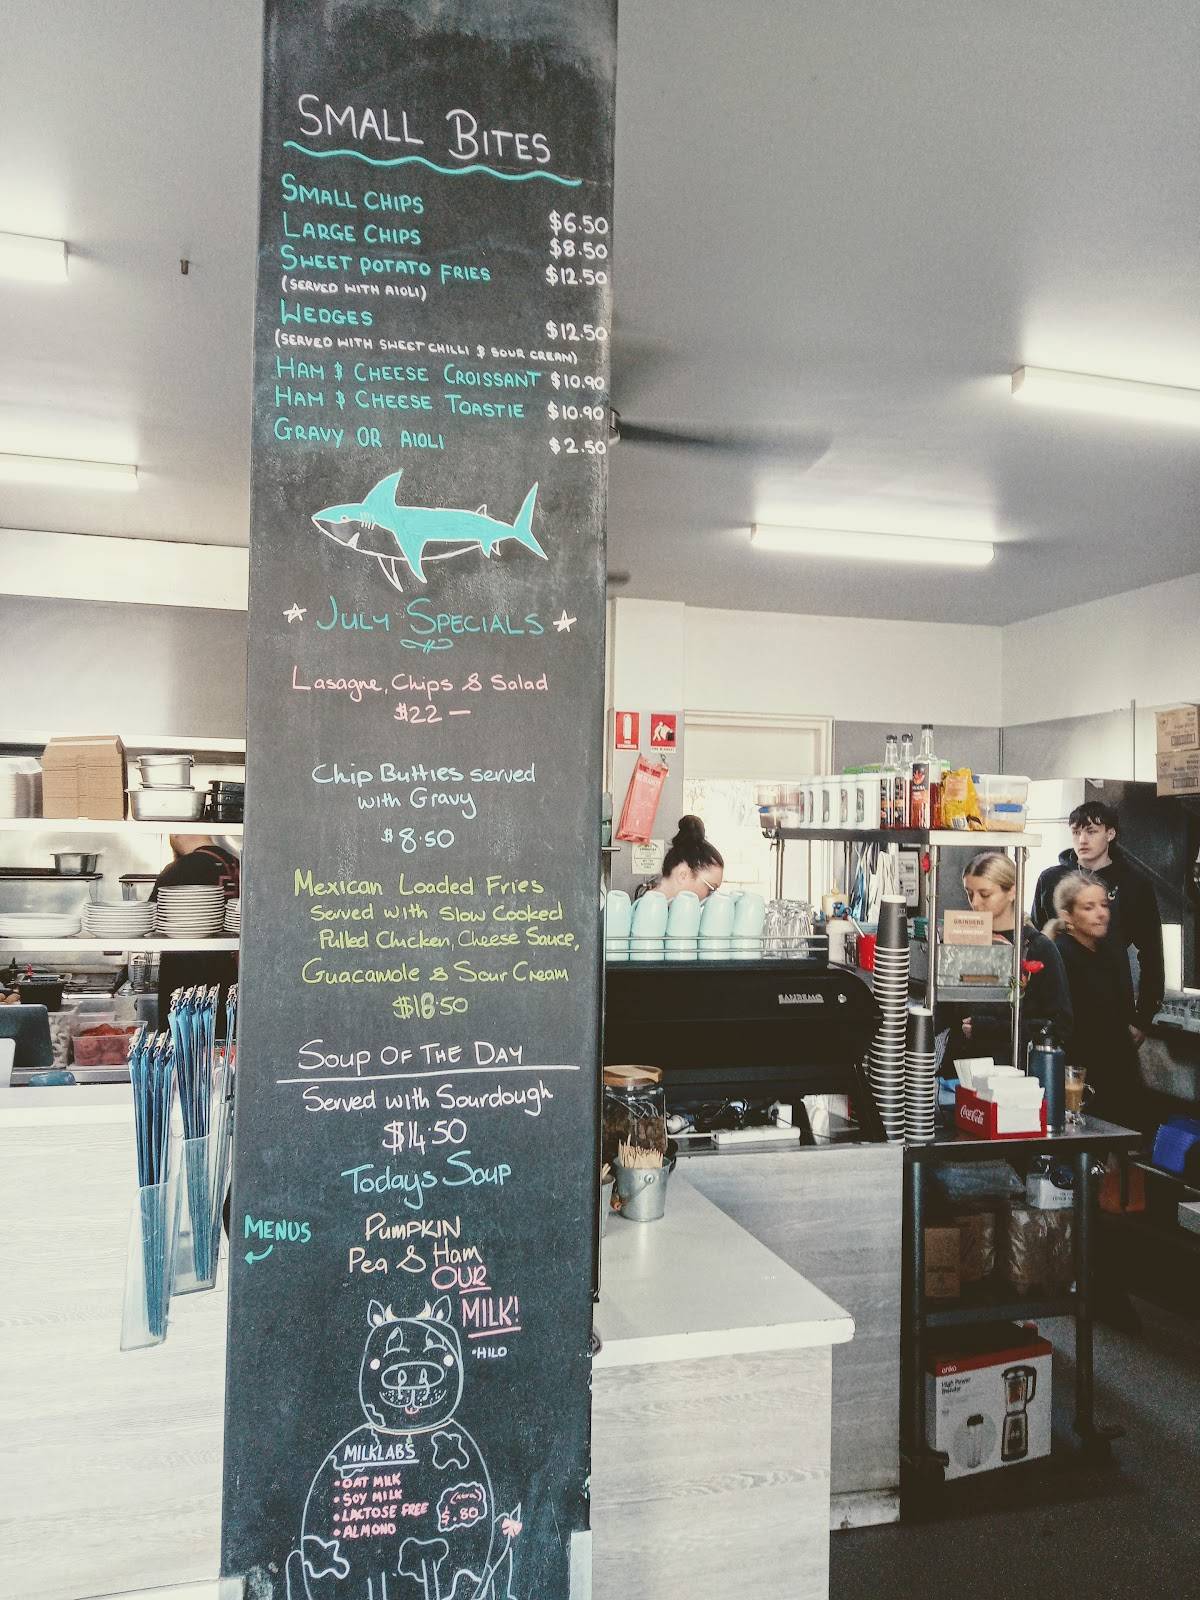 SMALL BITES
SMALL CHIPS $6.50
LARGE CHIPS $8.50
SWEET POTATO FRIES $12.50
(SERVED WITH AIOLI)
WEDGES $12.50
(SERVED WITH SWEET CHILLI & SOUR CREAM)
HAM & CHEESE CROISSANT $10.90
HAM & CHEESE TOASTIE $10.90
GRAVY OR AIOLI $2.50
JULY SPECIALS
Lasagne, Chips & Salad
$22 —
Chip Butties served
with Gravy
$8.50
Mexican Loaded Fries
Served with Slow Cooked
Pulled Chicken, Cheese Sauce,
Guacamole & Sour Cream
$18.50
SOUP OF THE DAY
Served with Sourdough
$14.50
Todays Soup
PUMPKIN
Pea & Ham
MENUS
OUR
MILK!
•HILO
MILKLAB'S
•OAT MILK
•SOY MILK
•LACTOSE FREE
•ALMOND
$.80
SANREMO
GRINDERS
Coca-Cola
anko
High Power
Blender